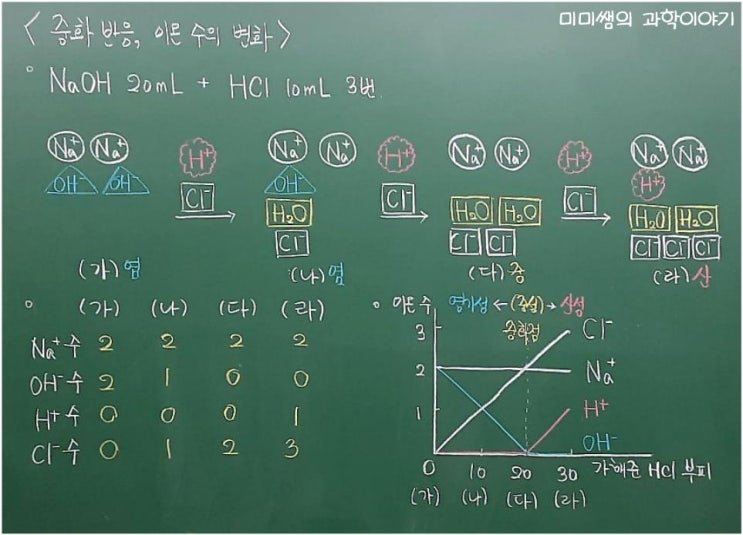 미미쌤의 과학이야기
< 중화 반응, 이온 수의 변화 >
° NaOH 20mL + HCl 10mL 3번.
Na⁺ Na⁺ H⁺ Na⁺ Na⁺ H⁺ Na⁺ Na⁺ H⁺ Na⁺ Na⁺
OH⁻ OH⁻ Cl⁻ OH⁻ Cl⁻ H₂O H₂O Cl⁻ H⁺
H₂O Cl⁻ Cl⁻ H₂O H₂O
Cl⁻ Cl⁻ Cl⁻ Cl⁻
(가) 염 (나) 염 (다) 중 (라) 산
° (가) (나) (다) (라)
Na⁺수 2 2 2 2
OH⁻수 2 1 0 0
H⁺수 0 0 0 1
Cl⁻수 0 1 2 3
° 이온수 염기성 ← (중성) → 산성
중화점
3 Cl⁻
2 Na⁺
1 H⁺
OH⁻
0 10 20 30 가해준 HCl 부피
(가) (나) (다) (라)